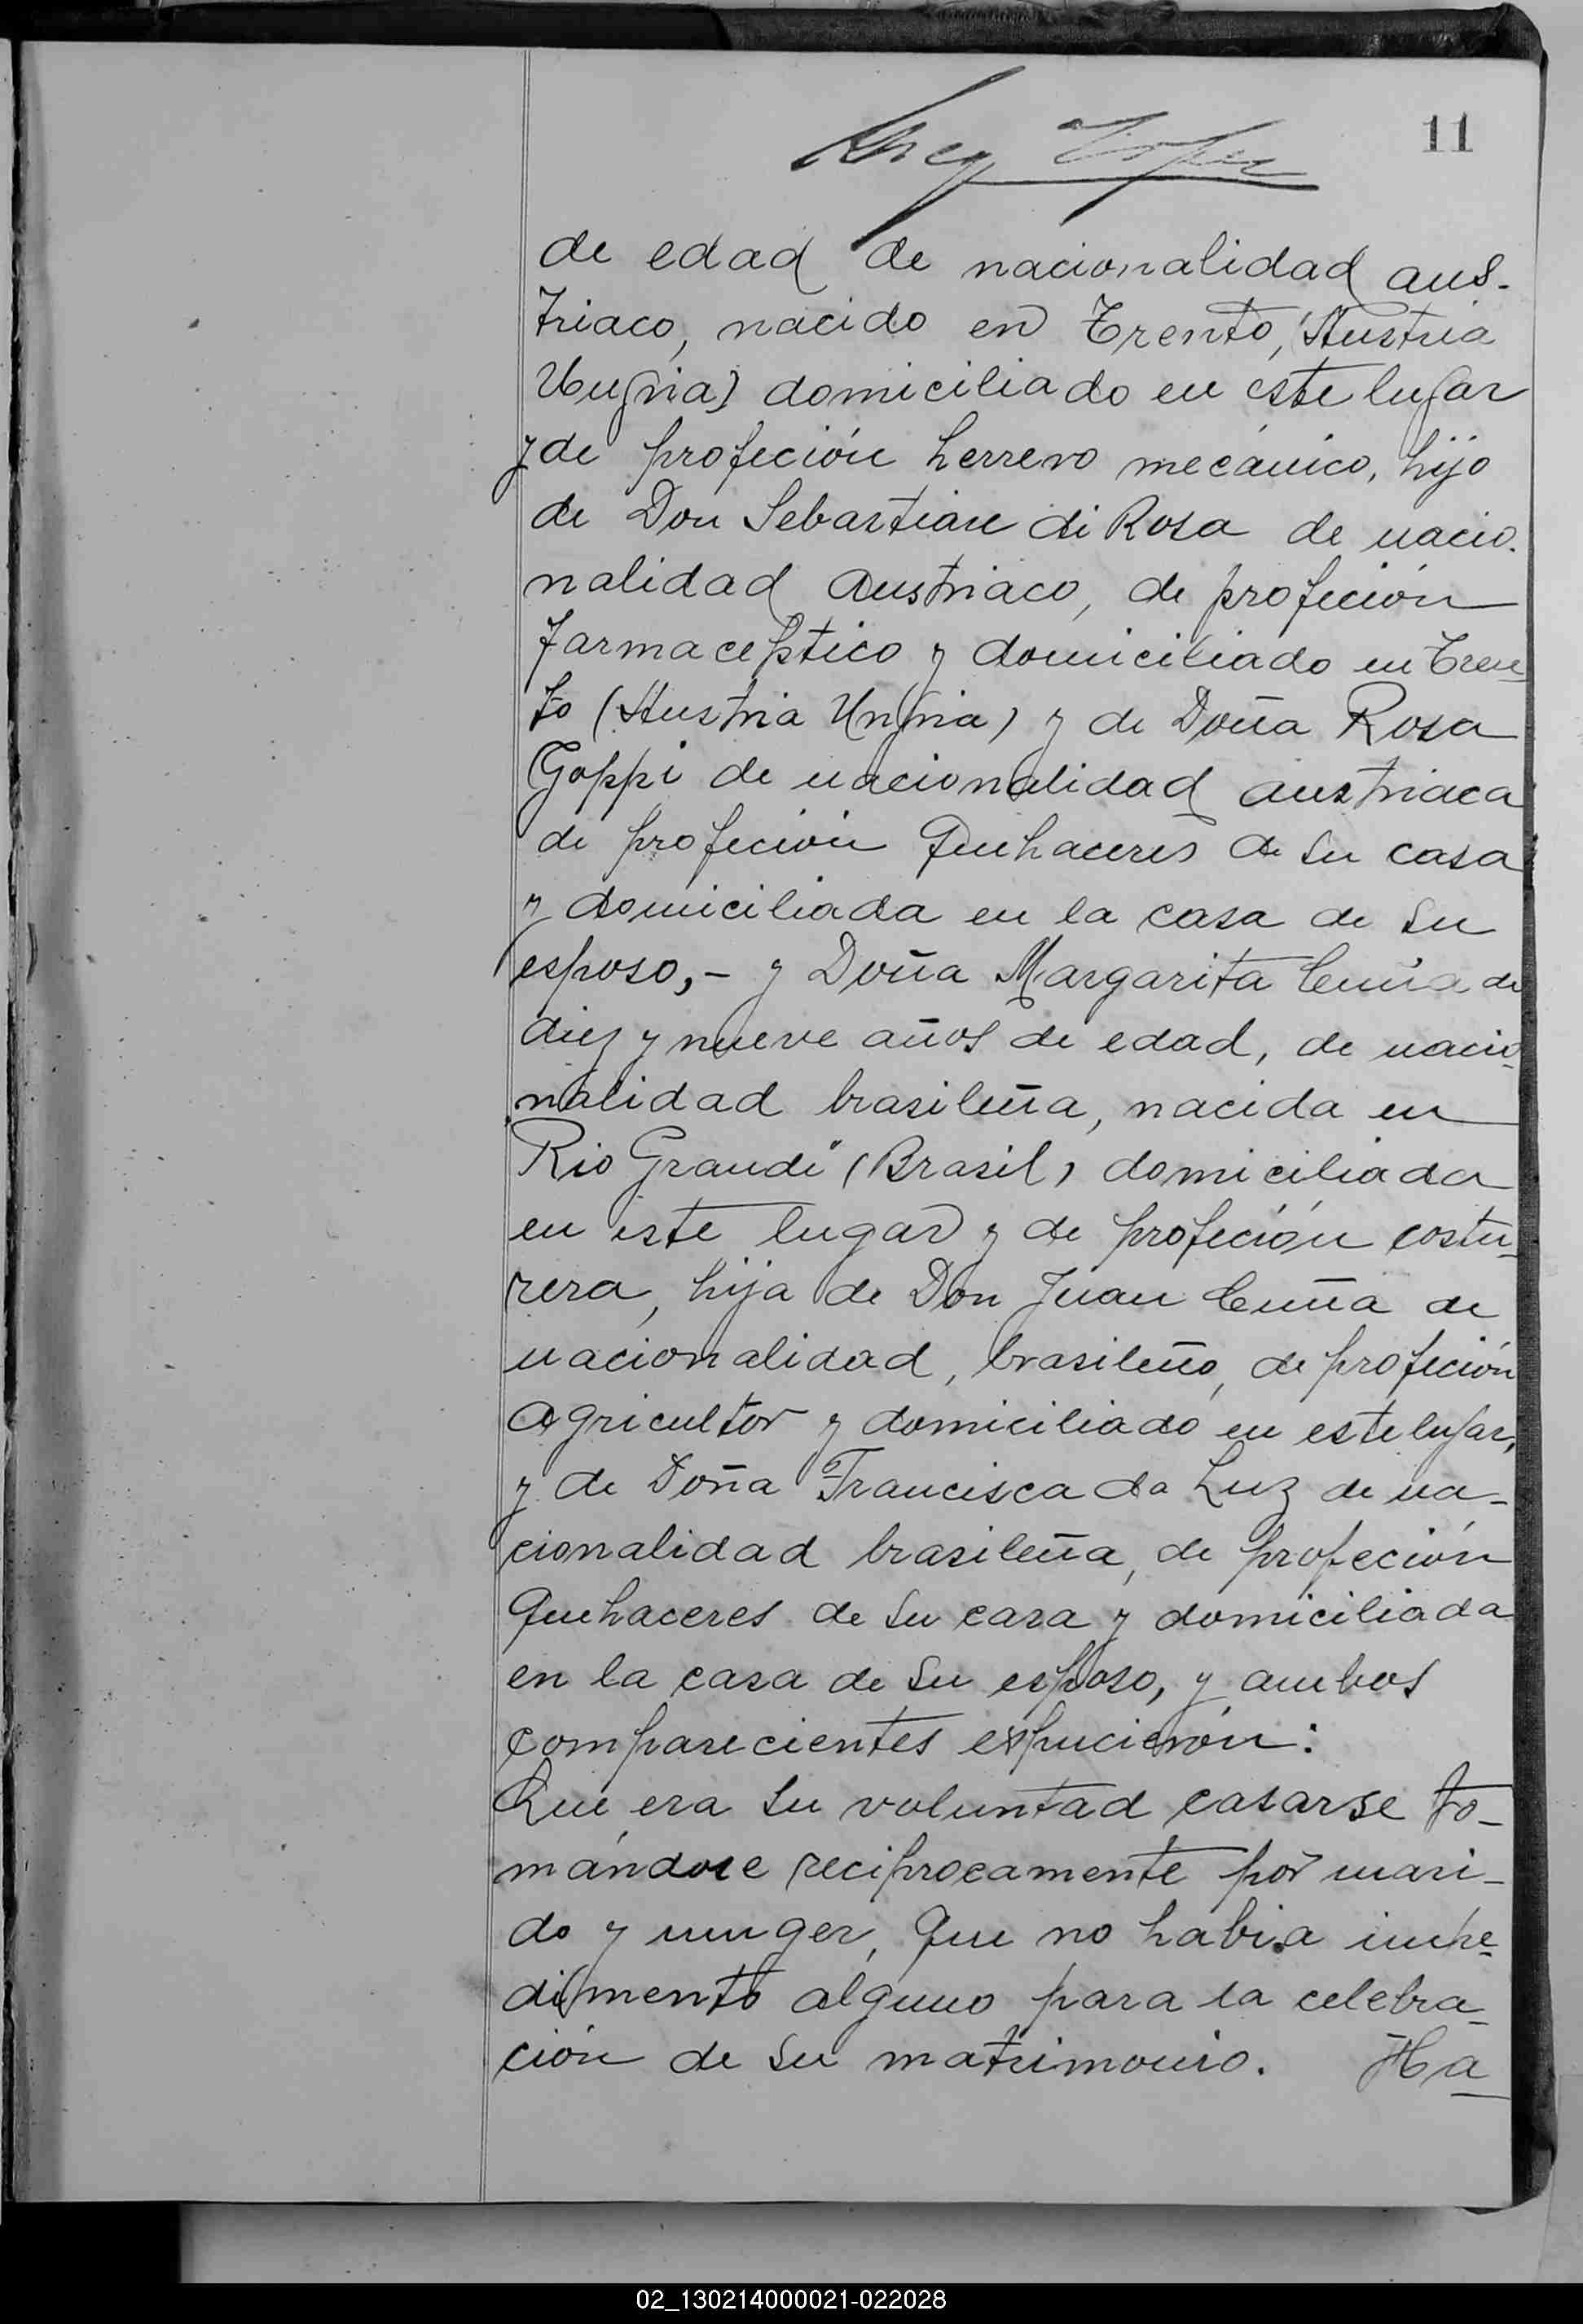 11
de edad de nacionalidad aus-
triaco, nacido en Trento, (Austria
Ungria) domiciliado en este lugar
y de profeción herrero mecánico, hijo
de Don Sebastian di Rosa de nacio-
nalidad austriaco, de profeción
farmaceptico y domiciliado en Tren-
to (Austria Ungria) y de Doña Rosa
Goppi de nacionalidad austriaca
de profeción quehaceres de su casa
y domiciliada en la casa de su
esposo,- y Doña Margarita Cuña de
diez y nueve años de edad, de nacio-
nalidad brasileña, nacida en
Rio Grande (Brasil) domiciliada
en este lugar y de profeción costu-
rera, hija de Don Juan Cuña de
nacionalidad, brasileño, de profeción
agricultor y domiciliado en este lugar,
y de Doña Francisca da Luz de na-
cionalidad brasileña, de profeción
quehaceres de su casa y domiciliada
en la casa de su esposo, y ambos
comparecientes
Que era su voluntad casarse to-
mándose reciprocamente por mari-
do y muger, que no habia impe-
dimento alguno para la celebra-
ción de su matrimonio. Ha-
02_130214000021-022028